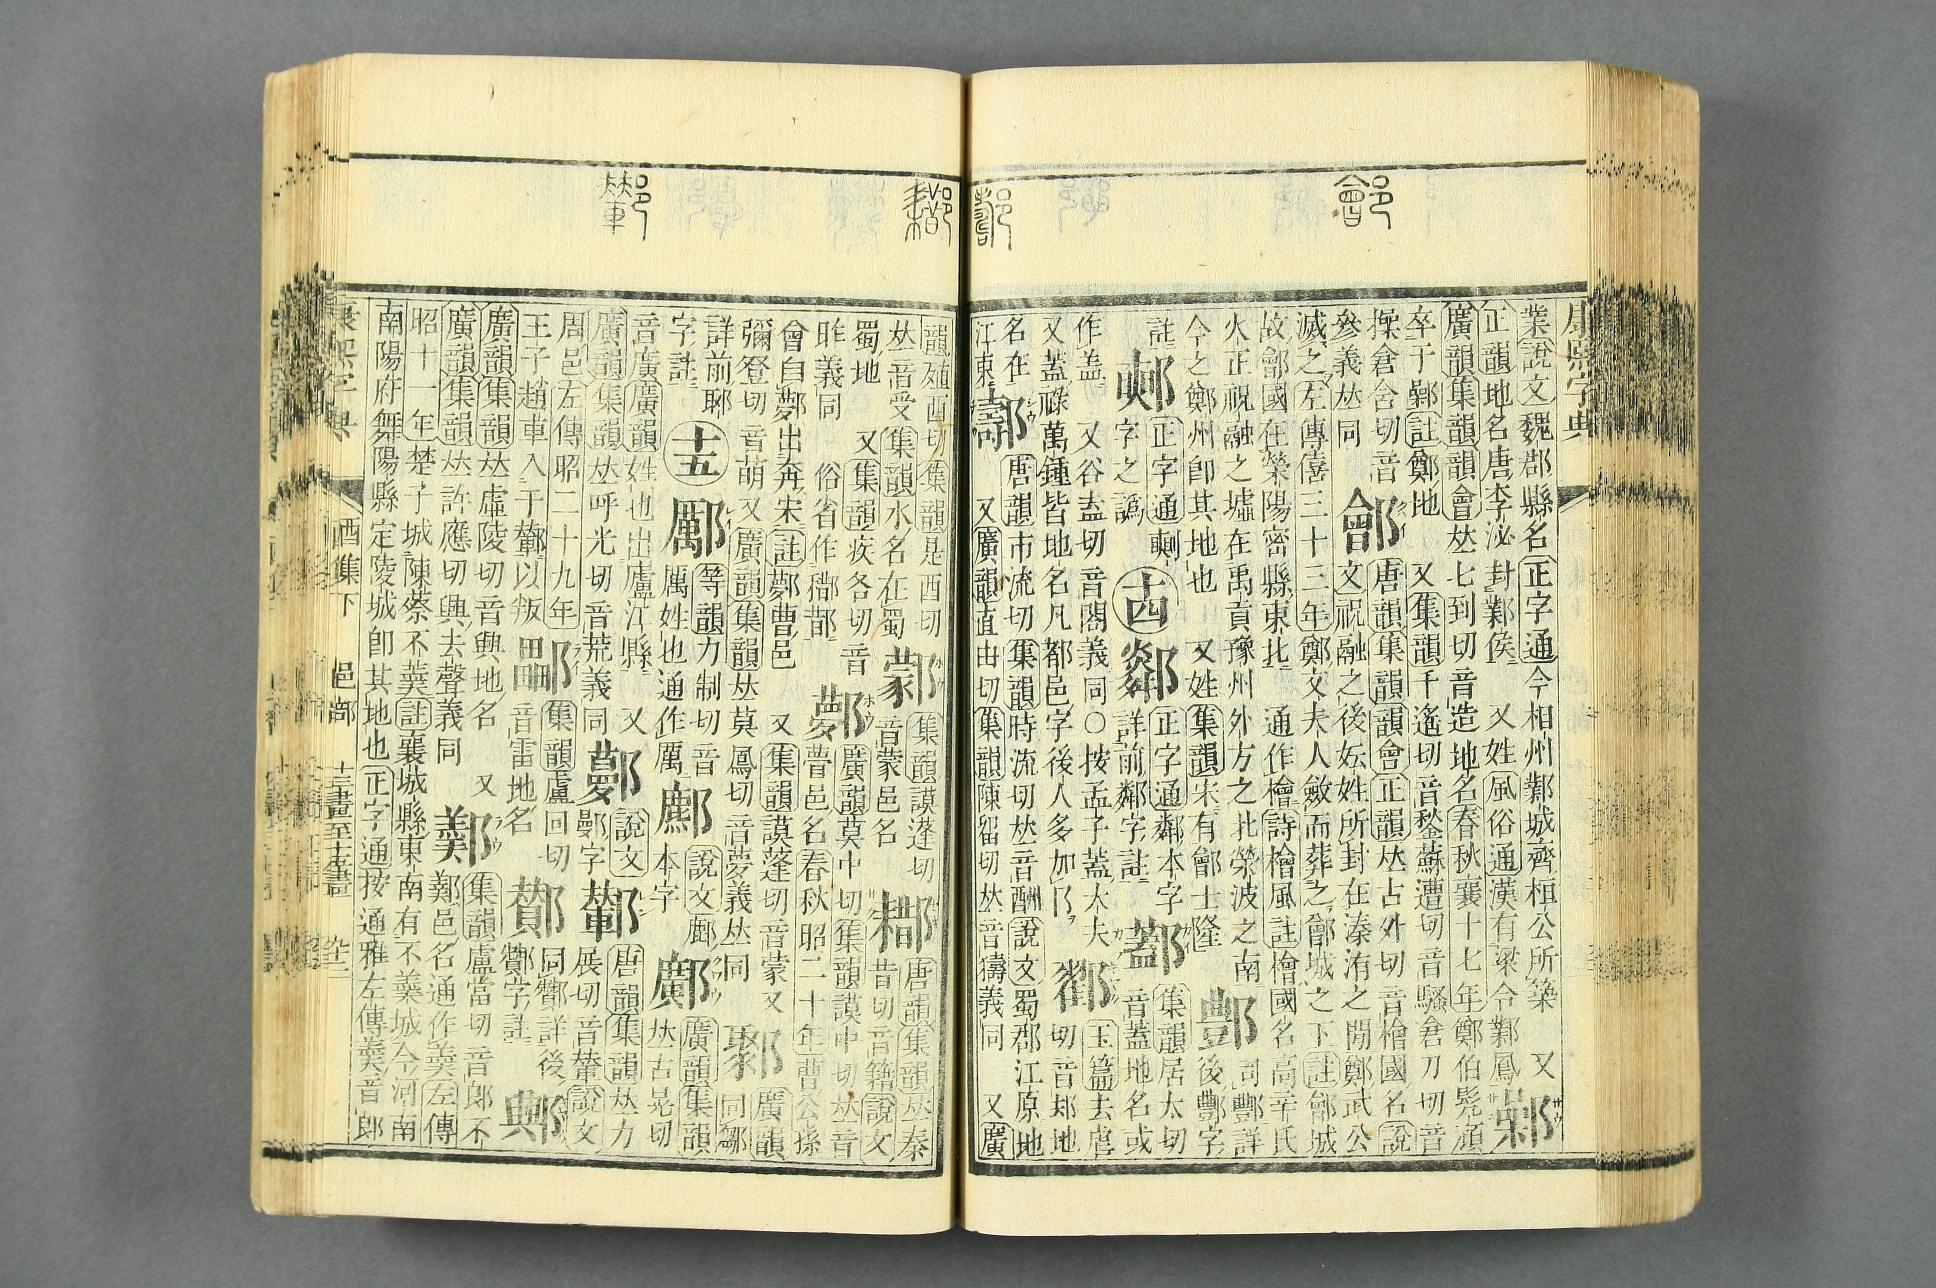 康熙字典
業說文魏郡縣名正字通今相州鄴城齊桓公所築 又
正韻地名唐李泌封鄴侯 又姓風俗通漢有梁令鄴鳳
廣韻集韻韻會𠀤七到切音造地名春秋襄十七年鄭伯髡頑
卒于鄵註鄭地 又集韻千遙切音鍫蘇遭切音騷倉刀切音
操倉含切音參義𠀤同
鄶
唐韻集韻韻會正韻𠀤古外切音檜國名說
文祝融之後妘姓所封在溱洧之閒鄭武公
滅之左傳僖三十三年鄭文夫人斂而葬之鄶城之下註鄶城
故鄶國在滎陽密縣東北 通作檜詩檜風註檜國名高辛氏
火正祝融之墟在禹貢豫州外方之北滎波之南
今之鄭州卽其地也 又姓集韻宋有鄶士隆
酆
同酆詳後酆字註
正字通
字之譌
十四
詳前鄰字註
正字通鄰本字
集韻居太切音蓋地名或
作盖 又谷盍切音閤義同○按孟子蓋大夫
又蓋祿萬鍾皆地名凡都邑字後人多加阝
玉篇去虐切音却地
名在江東
唐韻市流切集韻時流切𠀤音酬說文蜀郡江原地
又廣韻直由切集韻陳留切𠀤音籌義同 又廣
韻殖酉切集韻是酉切
𠀤音受集韻水名在蜀
集韻謨蓬切音蒙邑名
唐韻集韻𠀤秦昔切音籍說文
蜀地 又集韻疾各切音
昨義同 俗省作
鄸
廣韻莫中切集韻謨中切𠀤音
瞢邑名春秋昭二十年曹公孫
會自鄸出奔宋註鄸曹邑 又集韻謨蓬切音蒙又
彌登切音萌又廣韻集韻𠀤莫鳳切音夢義𠀤同
廣韻同鄹
詳前郰字註
十五
等韻力制切音厲姓也通作厲
說文鄜本字
廣韻集韻𠀤古晃切
音廣廣韻姓也出廬江縣 又
廣韻集韻𠀤呼光切音荒義同
說文鄾字
唐韻集韻𠀤力展切音輦說文
周邑左傳昭二十九年
王子趙車入于鄻以叛
集韻盧回切音雷地名
同酇詳後酇字註
廣韻集韻𠀤虛陵切音興地名 又
廣韻集韻𠀤許應切興去聲義同
集韻盧當切音郎不羹邑名通作羹左傳
昭十一年楚子城陳蔡不羹註襄城縣東南有不羹城今河南
南陽府舞陽縣定陵城卽其地也正字通按通雅左傳羹音郎
康熙字典 酉集下 邑部